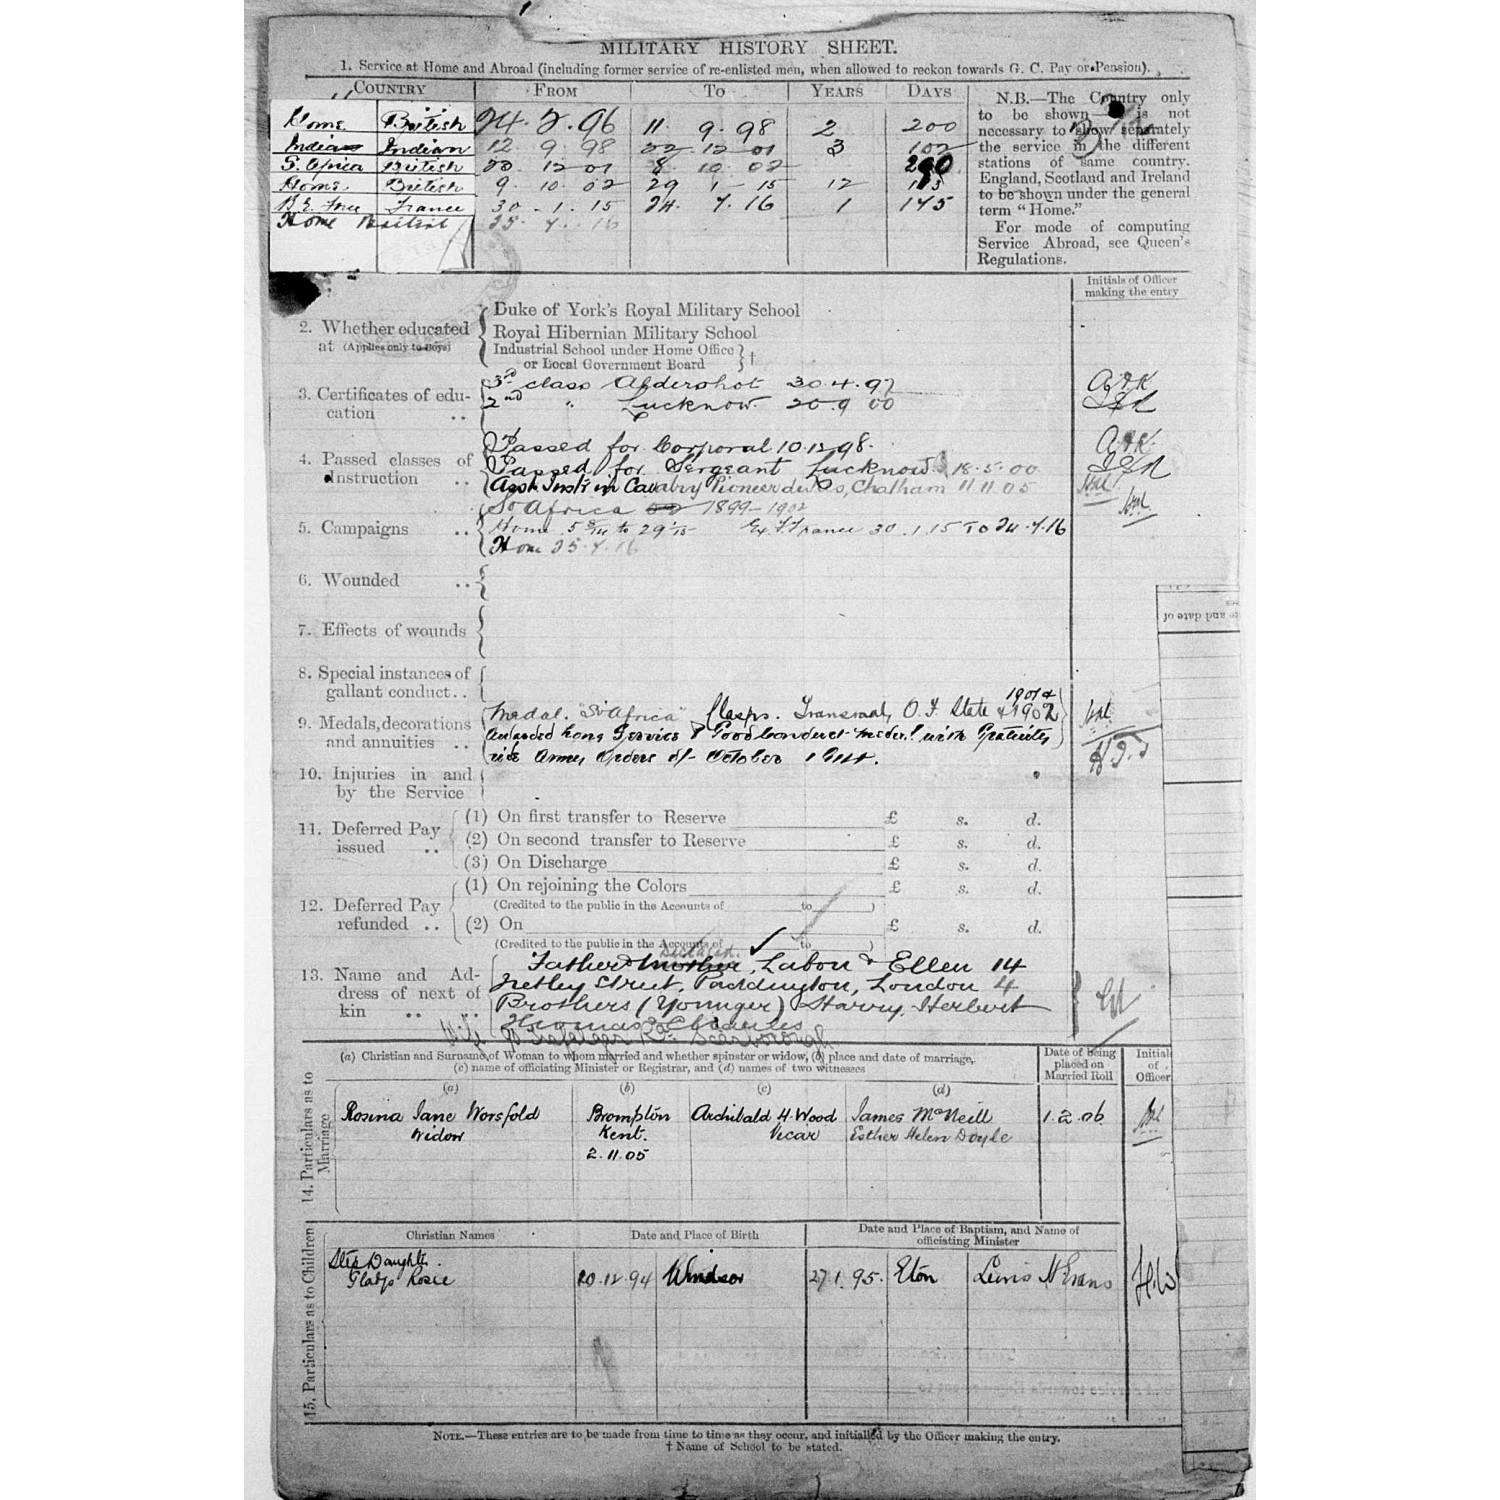 MILITARY HISTORY SHEET.
1. Service at Home and Abroad (including former service of re-enlisted men, when allowed to reckon towards G. C. Pay or Pension).
COUNTRY FROM TO YEARS DAYS
Home British 24. 2. 96 11 9. 98 2 200
India Indian 12 9 98 22 12 01 3 102
S. Africa British 12 01 8 10 02
Home British 9. 10. 02 29 1 15 12
B.E. Force France 30 . 1. 15 24. 7. 16 1
Home British 25. 7. 16
N.B.—The Country only
to be shown— is not
necessary to show separately
the service in the different
stations of same country.
England, Scotland and Ireland
to be shown under the general
term "Home."
For mode of computing
Service Abroad, see Queen's
Regulations.
Initials of Officer
making the entry
2. Whether educated
at (Applies only to Boys)
Duke of York's Royal Military School
Royal Hibernian Military School
Industrial School under Home Office
or Local Government Board }†
3. Certificates of edu-
cation ..
3rd class Aldershot 30.4.97
2nd " Lucknow 20.9 00
4. Passed classes of
Instruction ..
Passed for Corporal 10.12.98.
Passed for Sergeant Lucknow 18.5.00
Asst Instr in Cavalry Pioneer duties, Chatham 11.11.05
5. Campaigns ..
So Africa 1899-1902
Home 5 8/14 to 29 1/15 Ex. F. France 30.1.15 to 24.7.16
Home 25.7.16
6. Wounded ..
7. Effects of wounds
8. Special instances of
gallant conduct..
9. Medals, decorations
and annuities ..
Medal. "So Africa" Clasps. Transvaal, O. F. State 1901 & 1902
Awarded Long Service & Good Conduct medal with Gratuity
vide Army Orders of October 1914.
10. Injuries in and
by the Service
11. Deferred Pay
issued ..
(1) On first transfer to Reserve £ s. d.
(2) On second transfer to Reserve £ s. d.
(3) On Discharge £ s. d.
12. Deferred Pay
refunded ..
(1) On rejoining the Colors £ s. d.
(Credited to the public in the Accounts of to )
(2) On £ s. d.
(Credited to the public in the Accounts of to )
13. Name and Ad-
dress of next of
kin .. ..
Father & Mother, Labon & Ellen 14
Netley Street, Paddington, London 4
Brothers (Younger) Harry, Herbert
Thomas & Charles
Wife Trafalgar Rd Scarborough
14. Particulars as to
Marriage
(a) Christian and Surname of Woman to whom married and whether spinster or widow, (b) place and date of marriage,
(c) name of officiating Minister or Registrar, and (d) names of two witnesses
Date of being
placed on
Married Roll
Initials
of
Officer
(a) (b) (c) (d)
Rosina Jane Worsfold Brompton Archibald H. Wood James McNeill 1.2.06
Widow Kent. Vicar Esther Helen Doyle
2.11.05
15. Particulars as to Children
Christian Names Date and Place of Birth Date and Place of Baptism, and Name of
officiating Minister
Step Daughter.
Gladys Rosie 20.12.94 Windsor 27.1.95. Eton Lewis N Evans H.W
NOTE.—These entries are to be made from time to time as they occur, and initialled by the Officer making the entry.
† Name of School to be stated.